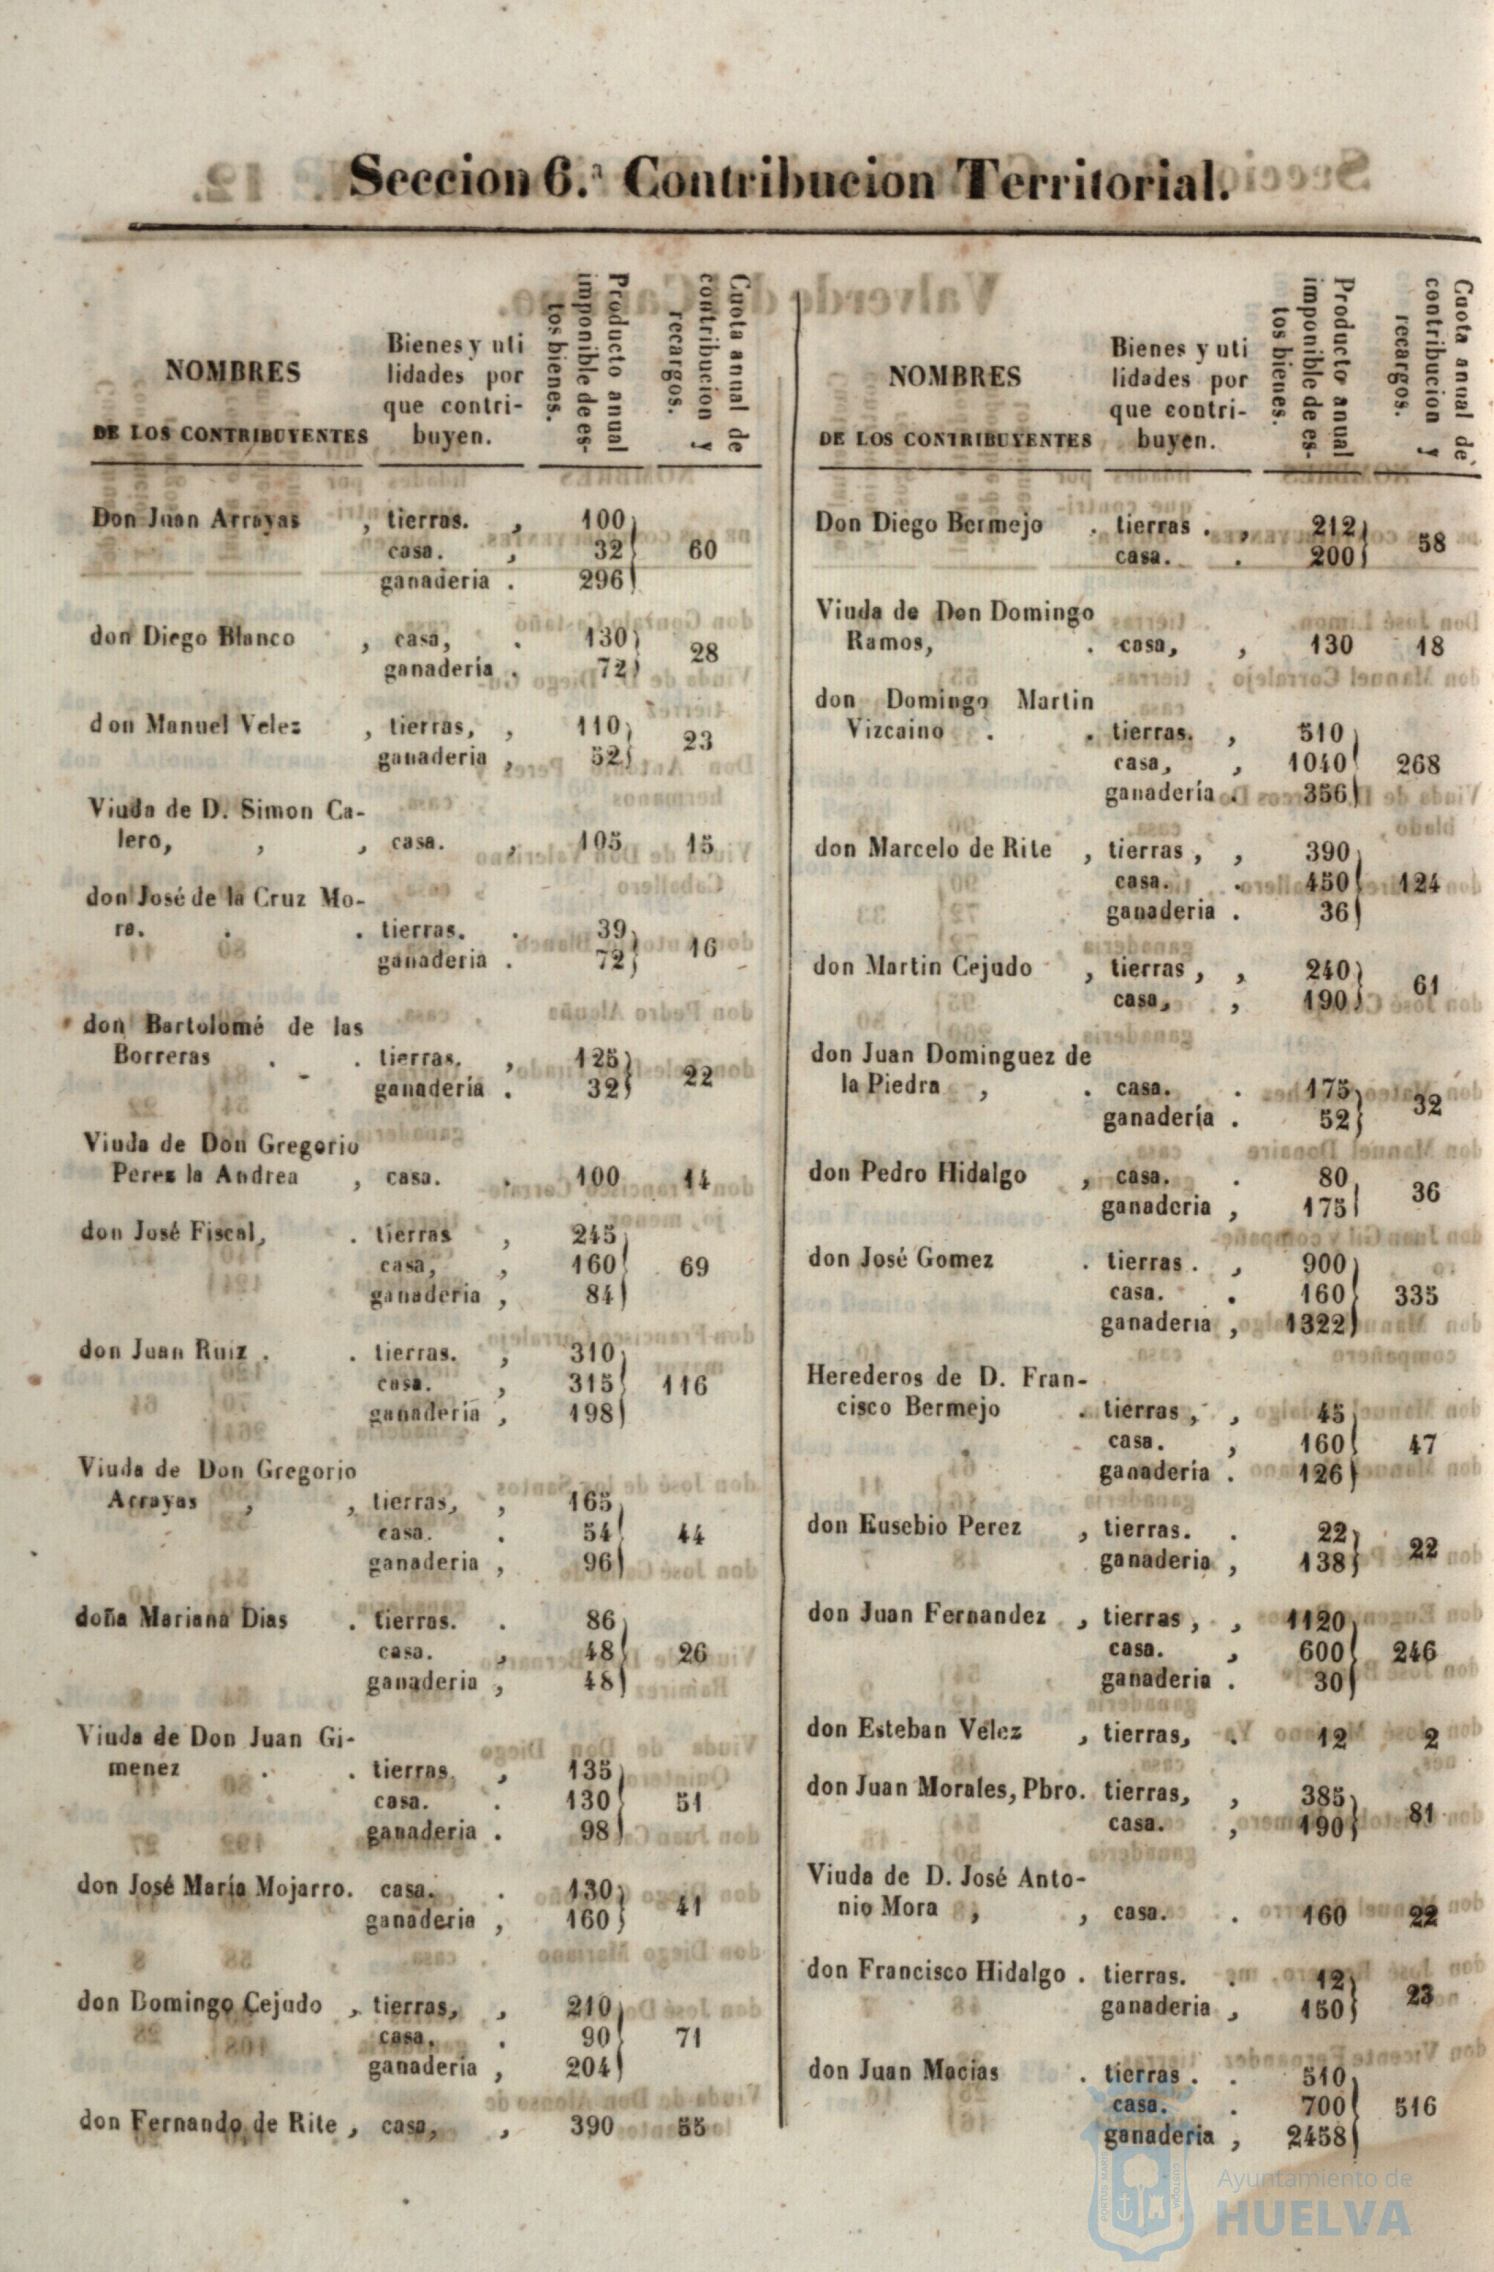 Seccion 6.ª Contribucion Territorial.
NOMBRES
DE LOS CONTRIBUYENTES
Bienes y uti
lidades por
que contri-
buyen.
Producto anual
imponible de es-
tos bienes.
Cuota anual de
contribucion y
recargos.
Don Juan Arrayas , tierras. , 100
casa. , 32 60
ganaderia . 296
don Diego Blanco , casa, . 130
ganadería . 72 28
don Manuel Velez , tierras, , 110
ganaderia , 52 23
Viuda de D. Simon Ca-
lero, , , casa. , 105 15
don José de la Cruz Mo-
ra. . . tierras. . 39
ganaderia . 72 16
don Bartolomé de las
Borreras . . tierras. , 125
ganaderia . 32 22
Viuda de Don Gregorio
Perez la Andrea , casa. . 100 14
don José Fiscal, . tierras , 245
casa, , 160 69
ganaderia , 84
don Juan Ruiz . . tierras. , 310
casa. , 315 116
ganaderia , 198
Viuda de Don Gregorio
Arrayas , , tierras, , 165
casa. . 54 44
ganaderia , 96
doña Mariana Dias . tierras. . 86
casa. , 48 26
ganaderia , 48
Viuda de Don Juan Gi-
menez . . tierras , 135
casa. . 130 51
ganaderia . 98
don José María Mojarro. casa. . 130
ganaderia , 160 41
don Domingo Cejudo , tierras, , 210
casa. . 90 71
ganaderia , 204
don Fernando de Rite , casa, , 390 55
NOMBRES
DE LOS CONTRIBUYENTES
Bienes y uti
lidades por
que contri-
buyen.
Producto anual
imponible de es-
tos bienes.
Cuota anual de
contribucion y
recargos.
Don Diego Bermejo . tierras . , 212
casa. . 200 58
Viuda de Don Domingo
Ramos, . casa, , 130 18
don Domingo Martin
Vizcaino . . tierras. , 510
casa, , 1040 268
ganadería . 356
don Marcelo de Rite , tierras , , 390
casa. . 450 124
ganaderia . 36
don Martin Cejudo , tierras , , 240
casa, , 190 61
don Juan Dominguez de
la Piedra , . casa. . 175
ganadería . 52 32
don Pedro Hidalgo , casa. . 80
ganaderia , 175 36
don José Gomez . tierras . , 900
casa. . 160 335
ganaderia , 1322
Herederos de D. Fran-
cisco Bermejo . tierras , , 45
casa. , 160 47
ganaderia . 126
don Eusebio Perez , tierras. . 22
ganaderia , 138 22
don Juan Fernandez , tierras , , 1120
casa. , 600 246
ganaderia . 30
don Esteban Velez , tierras, . 12 2
don Juan Morales, Pbro. tierras, , 385
casa. , 190 81
Viuda de D. José Anto-
nio Mora , , casa. . 160 22
don Francisco Hidalgo . tierras. . 12
ganaderia , 150 23
don Juan Macias . tierras . . 510
casa. . 700 516
ganaderia , 2458
Ayuntamiento de
HUELVA